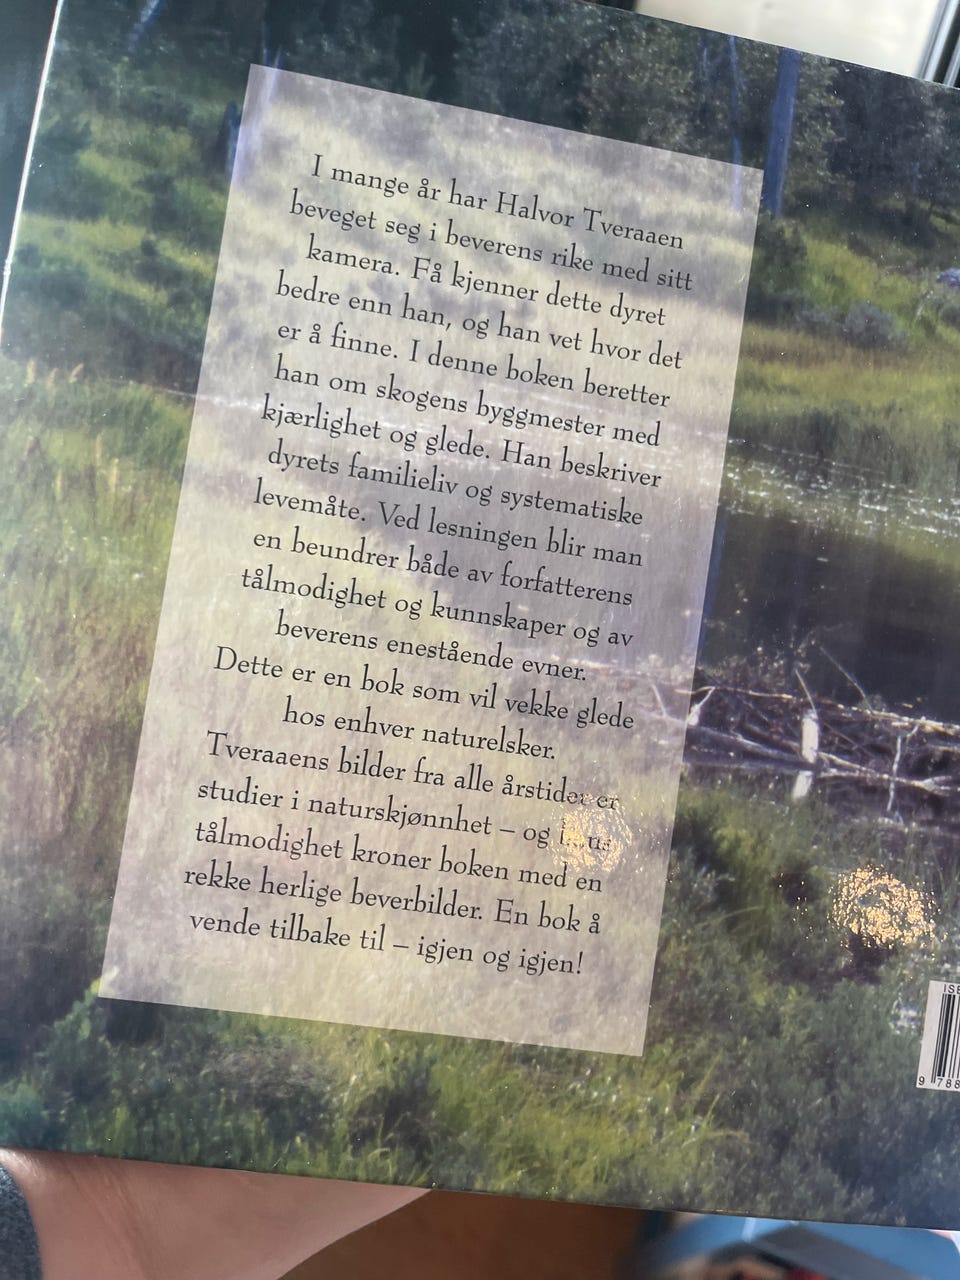 I mange år har Halvor Tveraaen
beveget seg i beverens rike med sitt
kamera. Få kjenner dette dyret
bedre enn han, og han vet hvor det
er å finne. I denne boken beretter
han om skogens byggmester med
kjærlighet og glede. Han beskriver
dyrets familieliv og systematiske
levemåte. Ved lesningen blir man
en beundrer både av forfatterens
tålmodighet og kunnskaper og av
beverens enestående evner.
Dette er en bok som vil vekke glede
hos enhver naturelsker.
Tveraaens bilder fra alle årstider er
studier i naturskjønnhet – og
tålmodighet kroner boken med en
rekke herlige beverbilder. En bok å
vende tilbake til – igjen og igjen!
ISB
9 788